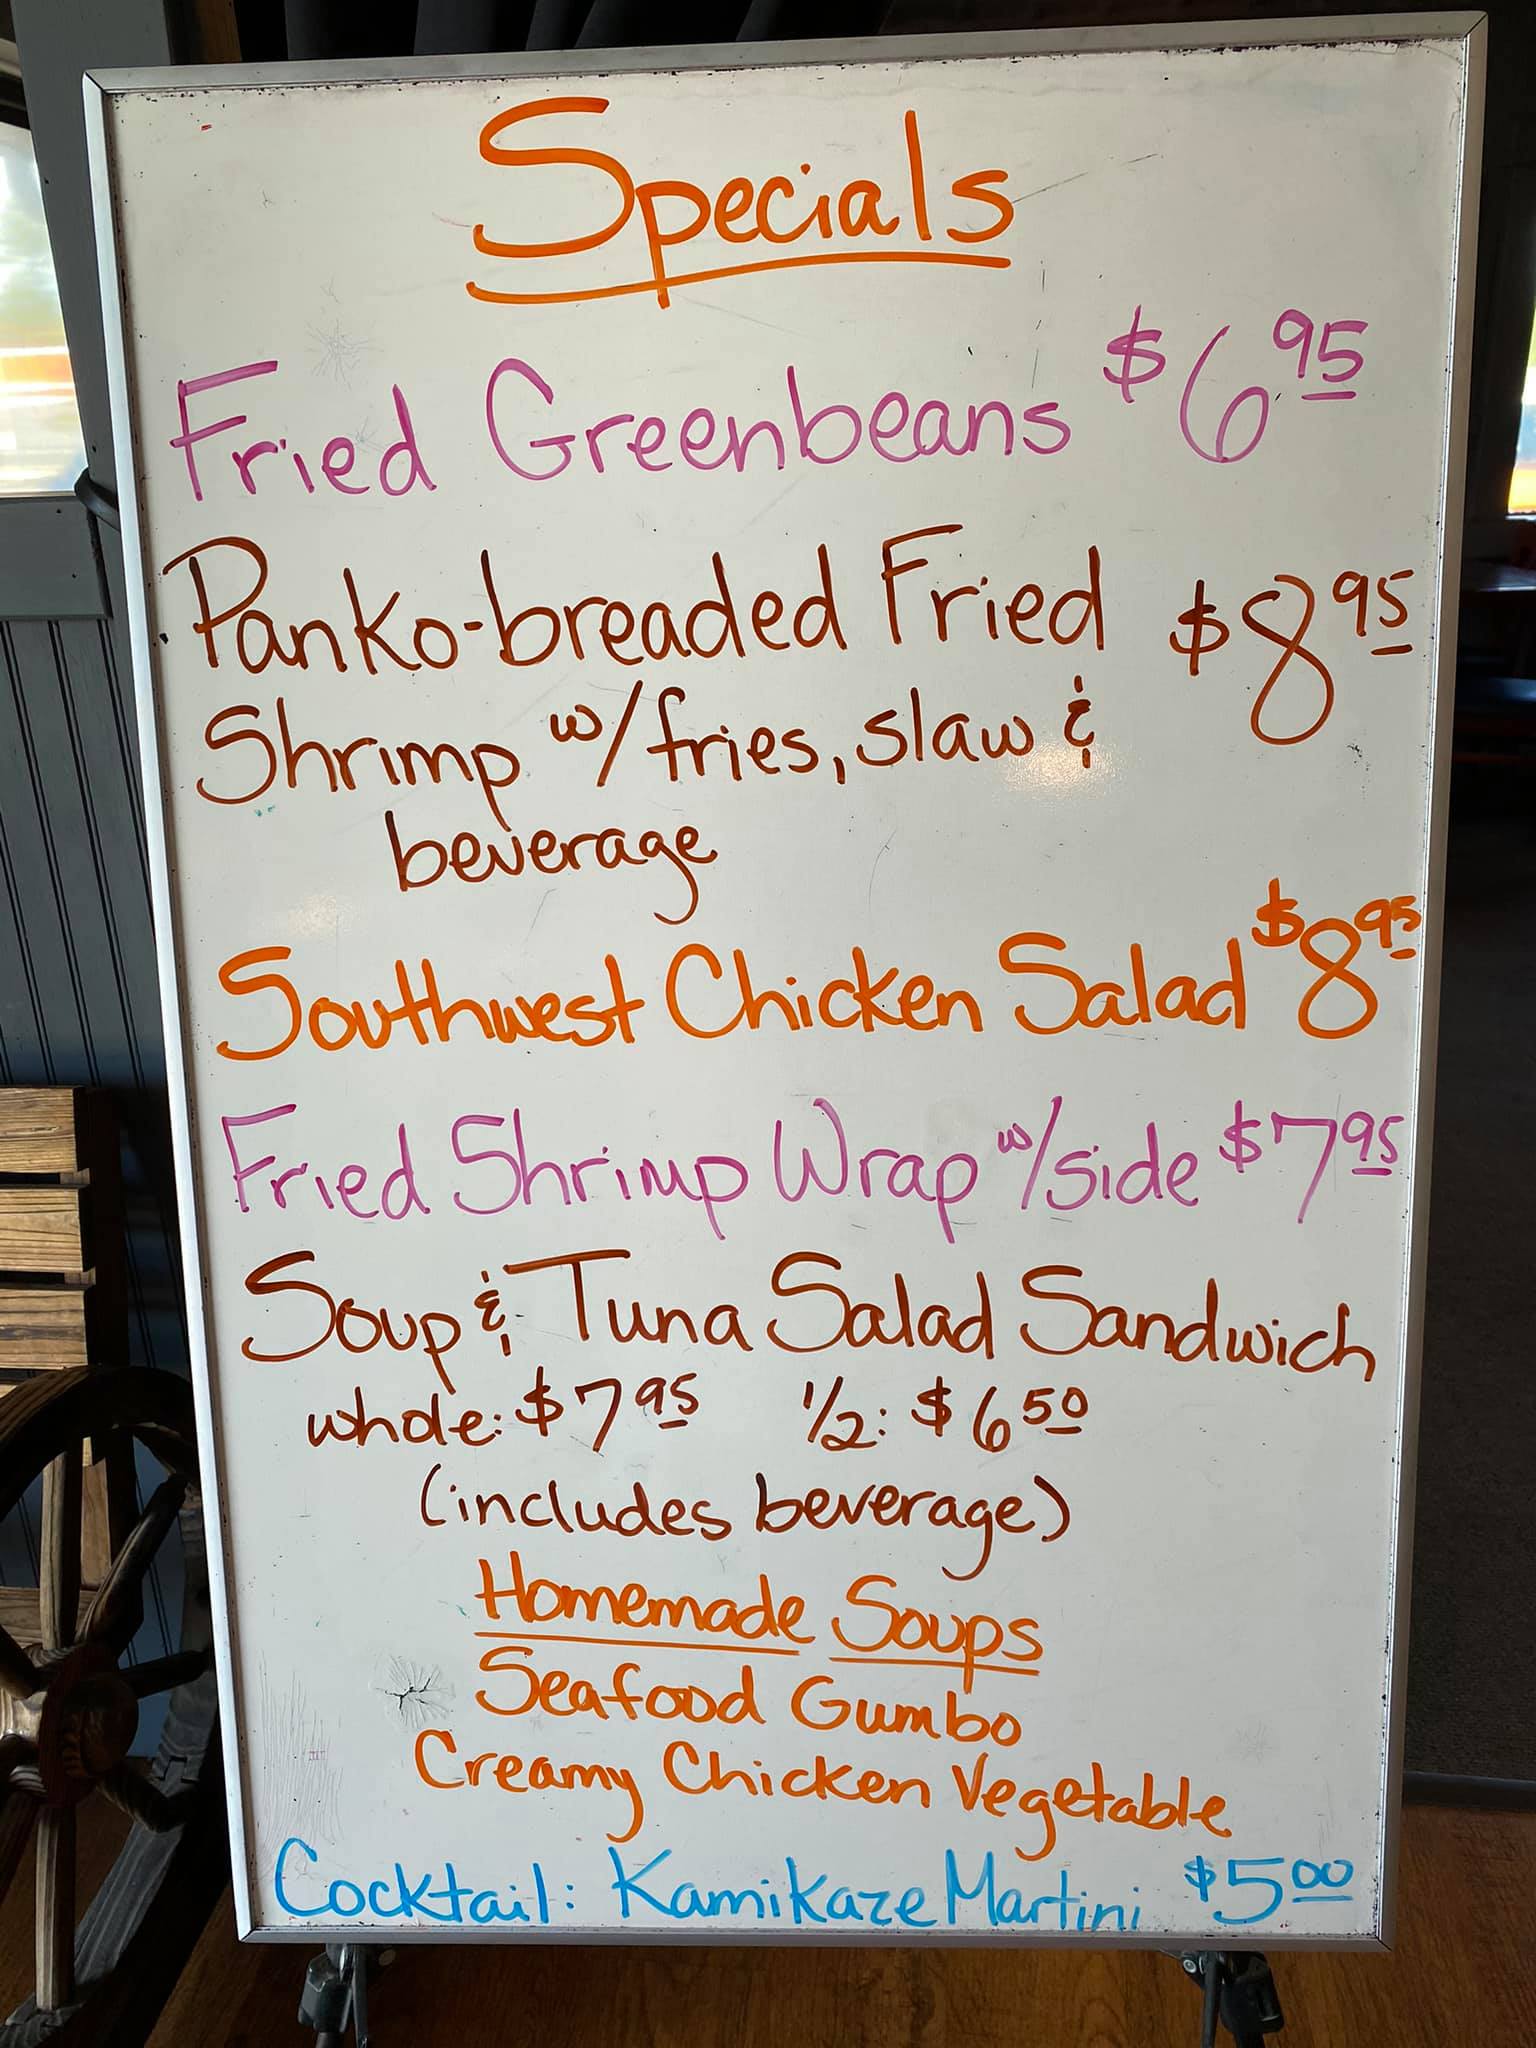 Specials
Fried Greenbeans $6.95
Panko-breaded Fried $8.95
Shrimp w/fries, slaw &
beverage
Southwest Chicken Salad $8.95
Fried Shrimp Wrap w/side $7.95
Soup & Tuna Salad Sandwich
whole: $7.95 1/2: $6.50
(includes beverage)
Homemade Soups
Seafood Gumbo
Creamy Chicken Vegetable
Cocktail: Kamikaze Martini $5.00